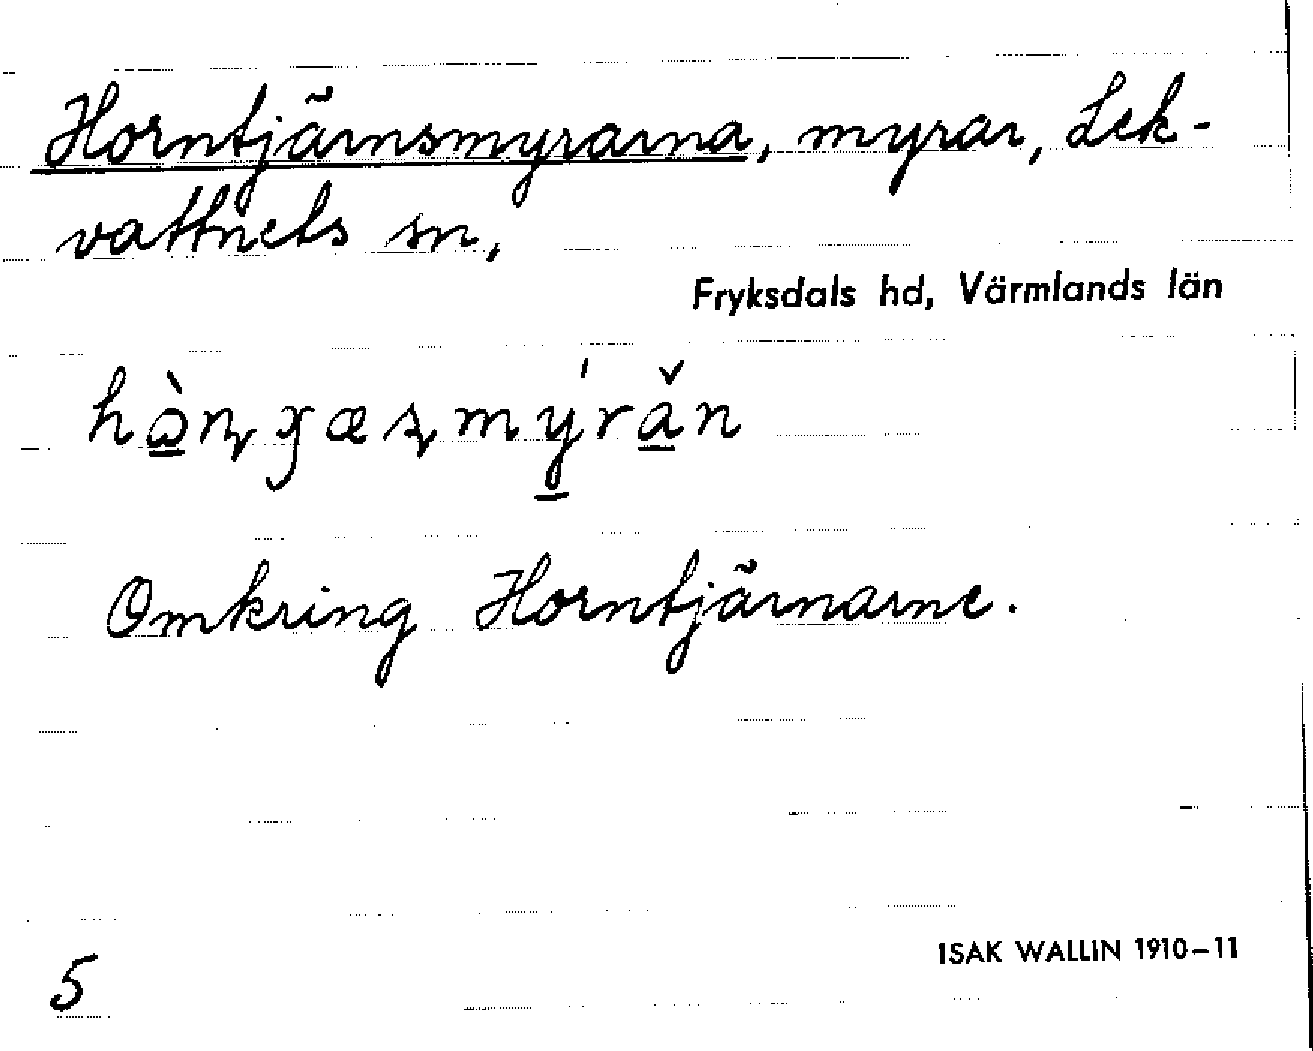 Horntjärnsmyrarna, myrar, Lek-
vattnets sn,
Fryksdals hd, Värmlands län
Omkring Horntjärnarne.
ISAK WALLIN 1910–11
5